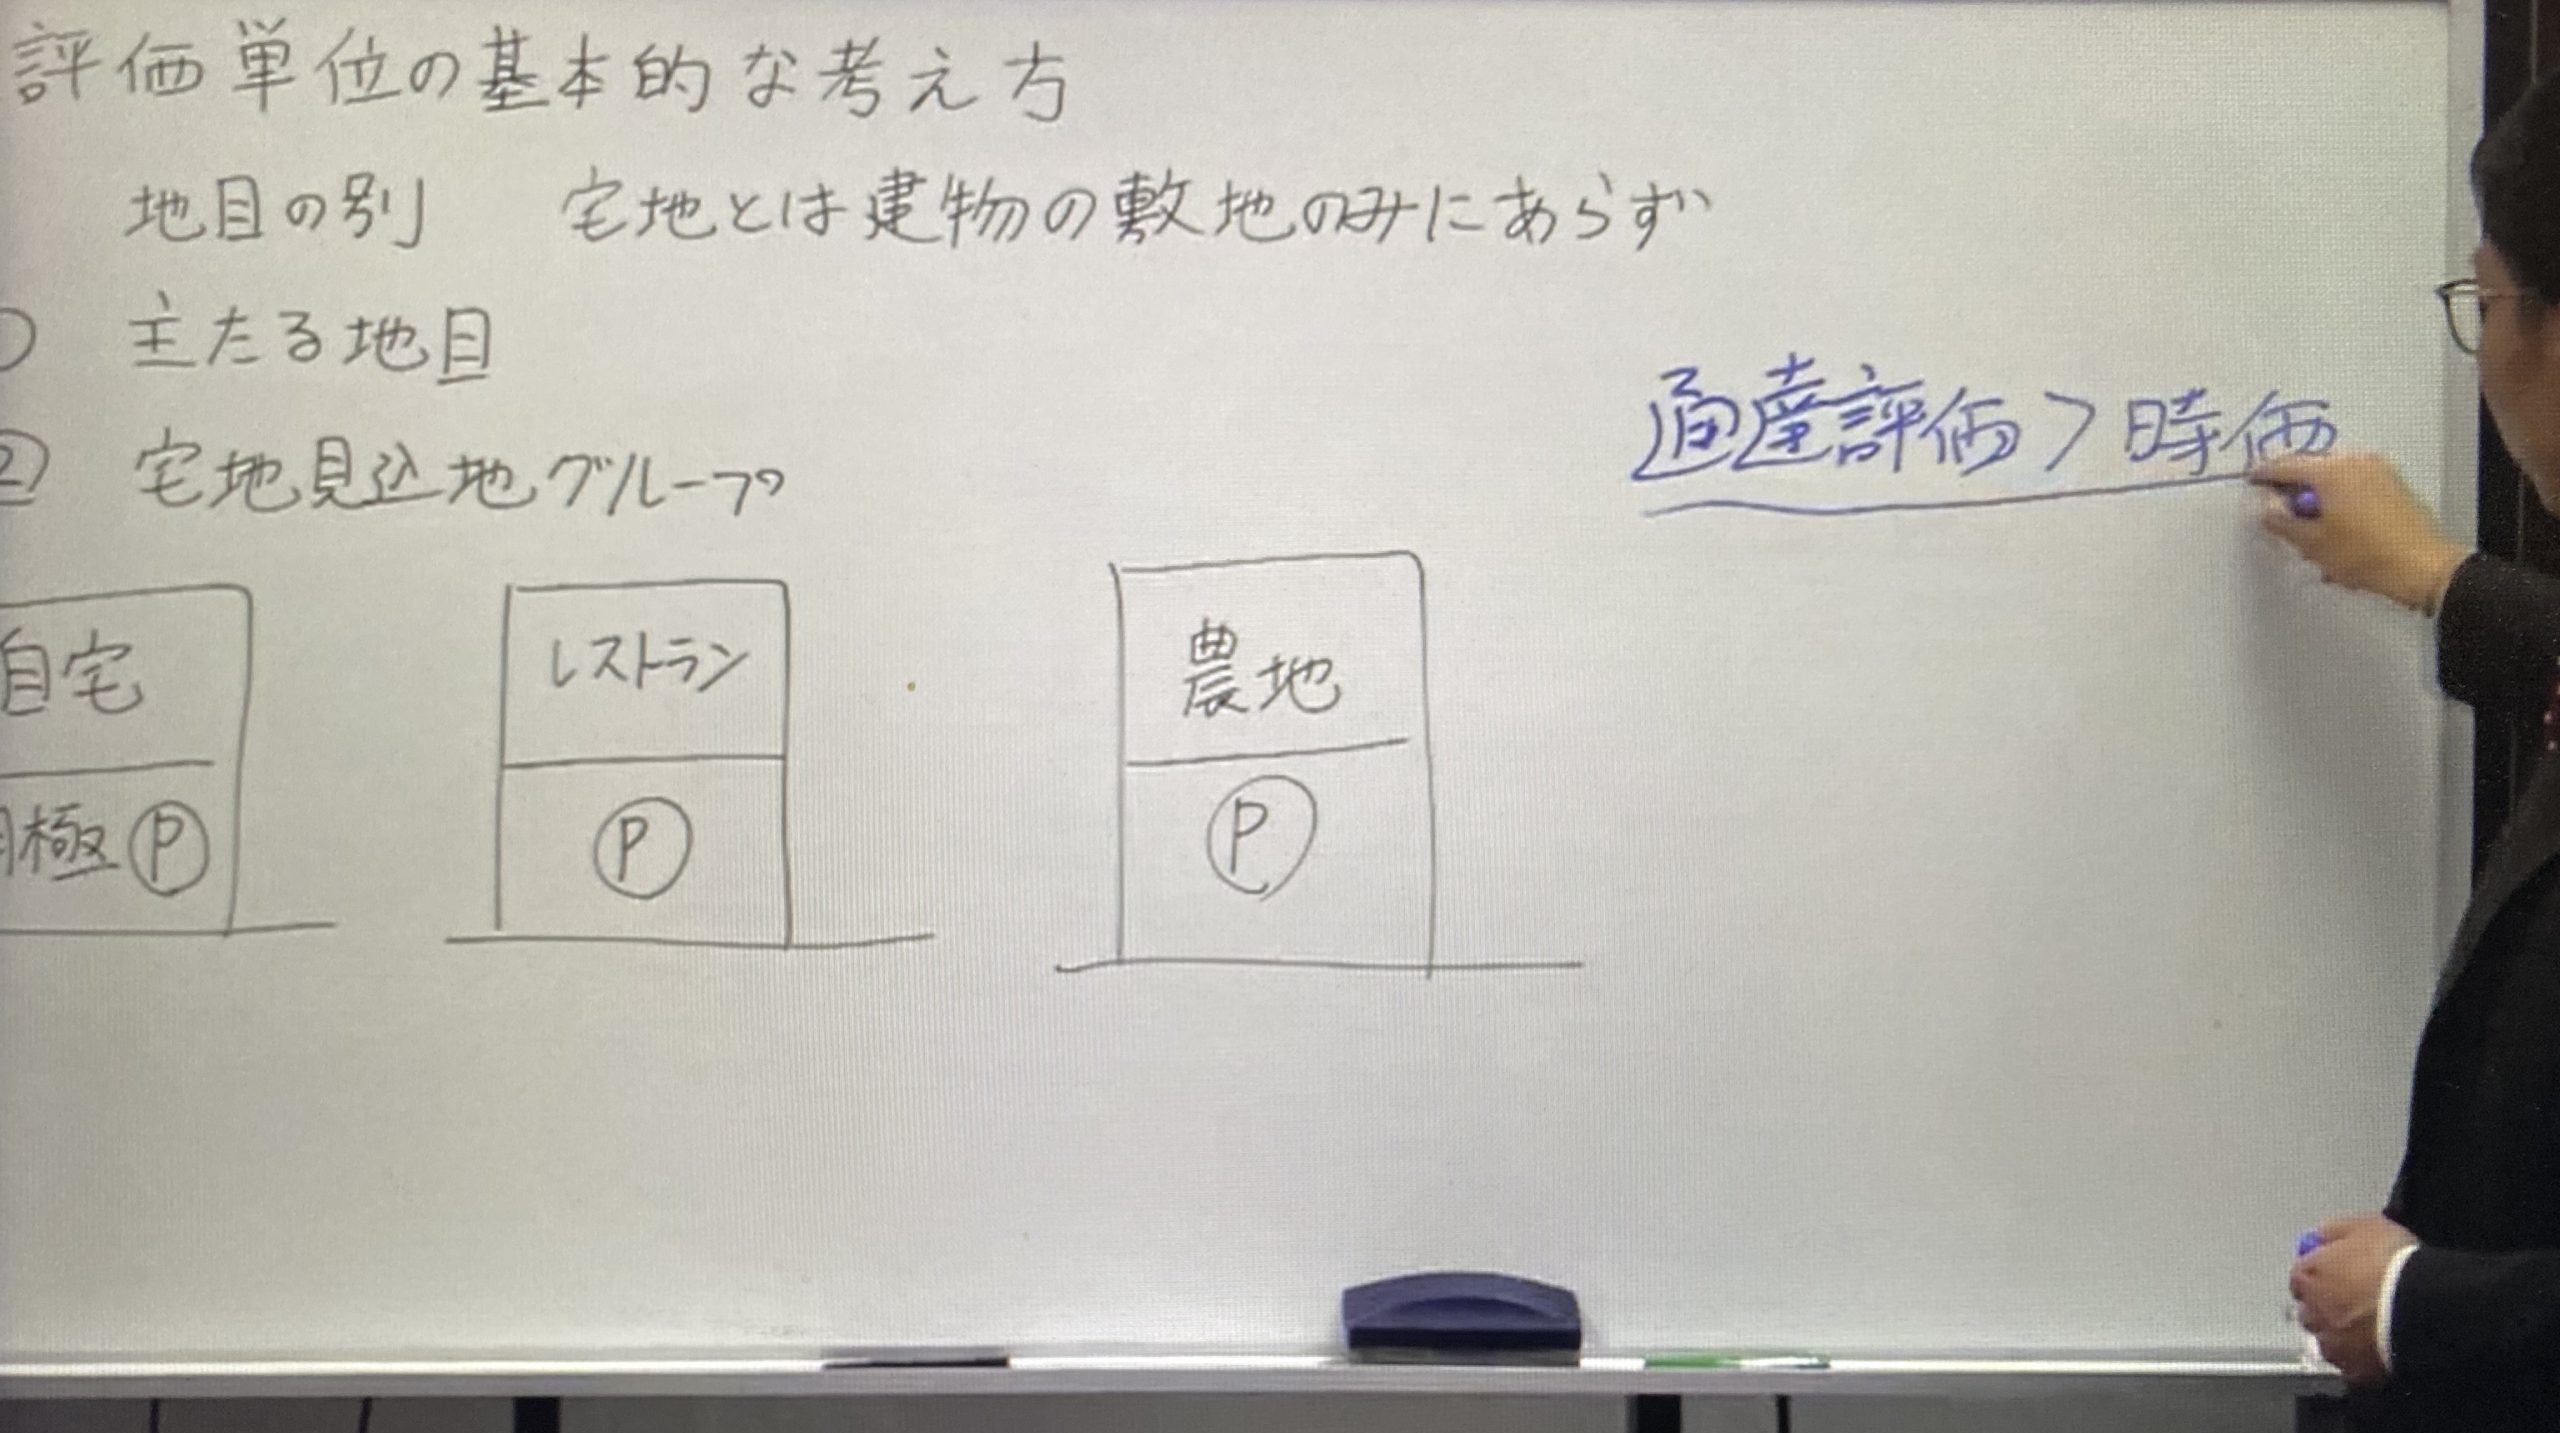 評価単位の基本的な考え方
地目の別 宅地とは建物の敷地のみにあらず
主たる地目
② 宅地見込地グループ
通達評価>時価
自宅
月極Ⓟ
レストラン
Ⓟ
農地
Ⓟ